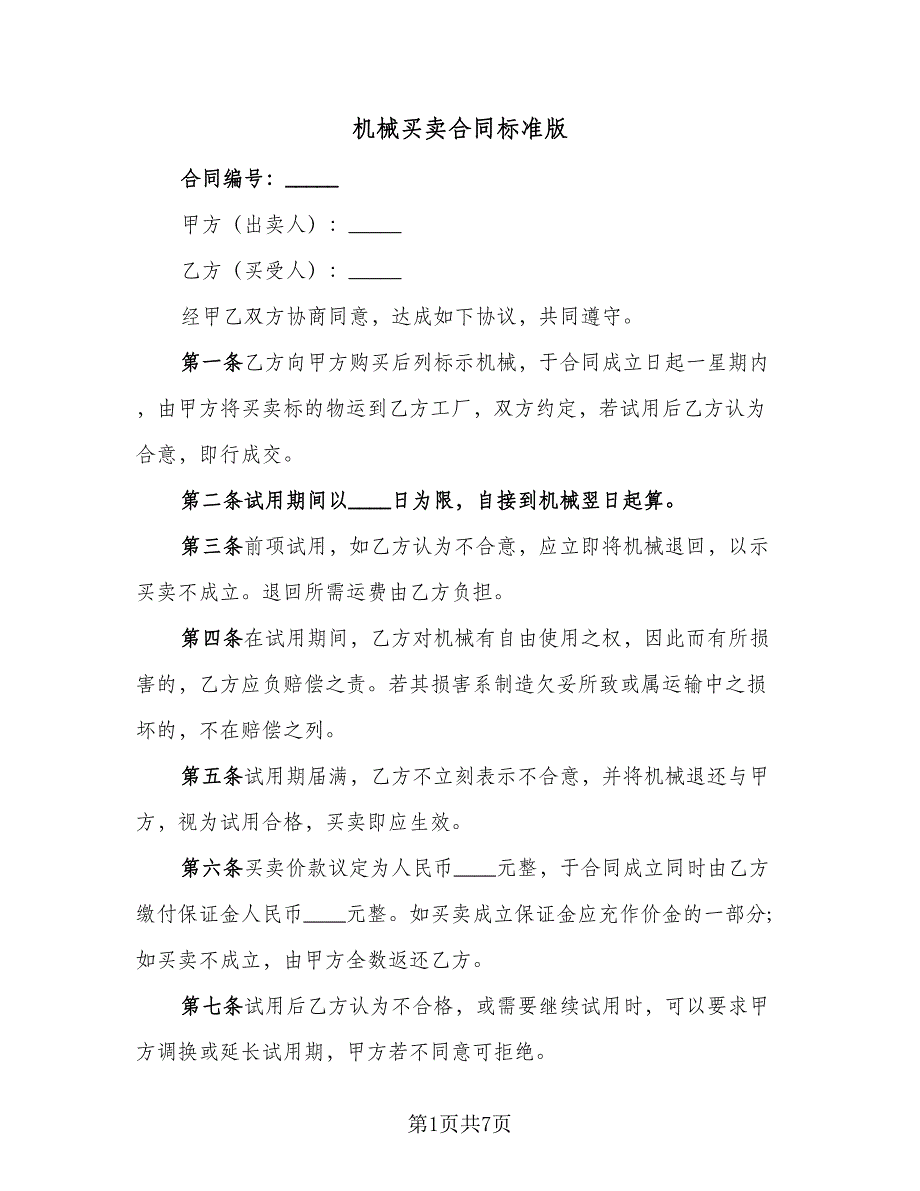 机械买卖合同标准版
合同编号：_____
甲方（出卖人）：_____
乙方（买受人）：_____
经甲乙双方协商同意，达成如下协议，共同遵守。
第一条乙方向甲方购买后列标示机械，于合同成立日起一星期内
，由甲方将买卖标的物运到乙方工厂，双方约定，若试用后乙方认为
合意，即行成交。
第二条试用期间以____日为限，自接到机械翌日起算。
第三条前项试用，如乙方认为不合意，应立即将机械退回，以示
买卖不成立。退回所需运费由乙方负担。
第四条在试用期间，乙方对机械有自由使用之权，因此而有所损
害的，乙方应负赔偿之责。若其损害系制造欠妥所致或属运输中之损
坏的，不在赔偿之列。
第五条试用期届满，乙方不立刻表示不合意，并将机械退还与甲
方，视为试用合格，买卖即应生效。
第六条买卖价款议定为人民币____元整，于合同成立同时由乙方
缴付保证金人民币____元整。如买卖成立保证金应充作价金的一部分;
如买卖不成立，由甲方全数返还乙方。
第七条试用后乙方认为不合格，或需要继续试用时，可以要求甲
方调换或延长试用期，甲方若不同意可拒绝。
第1页共7页